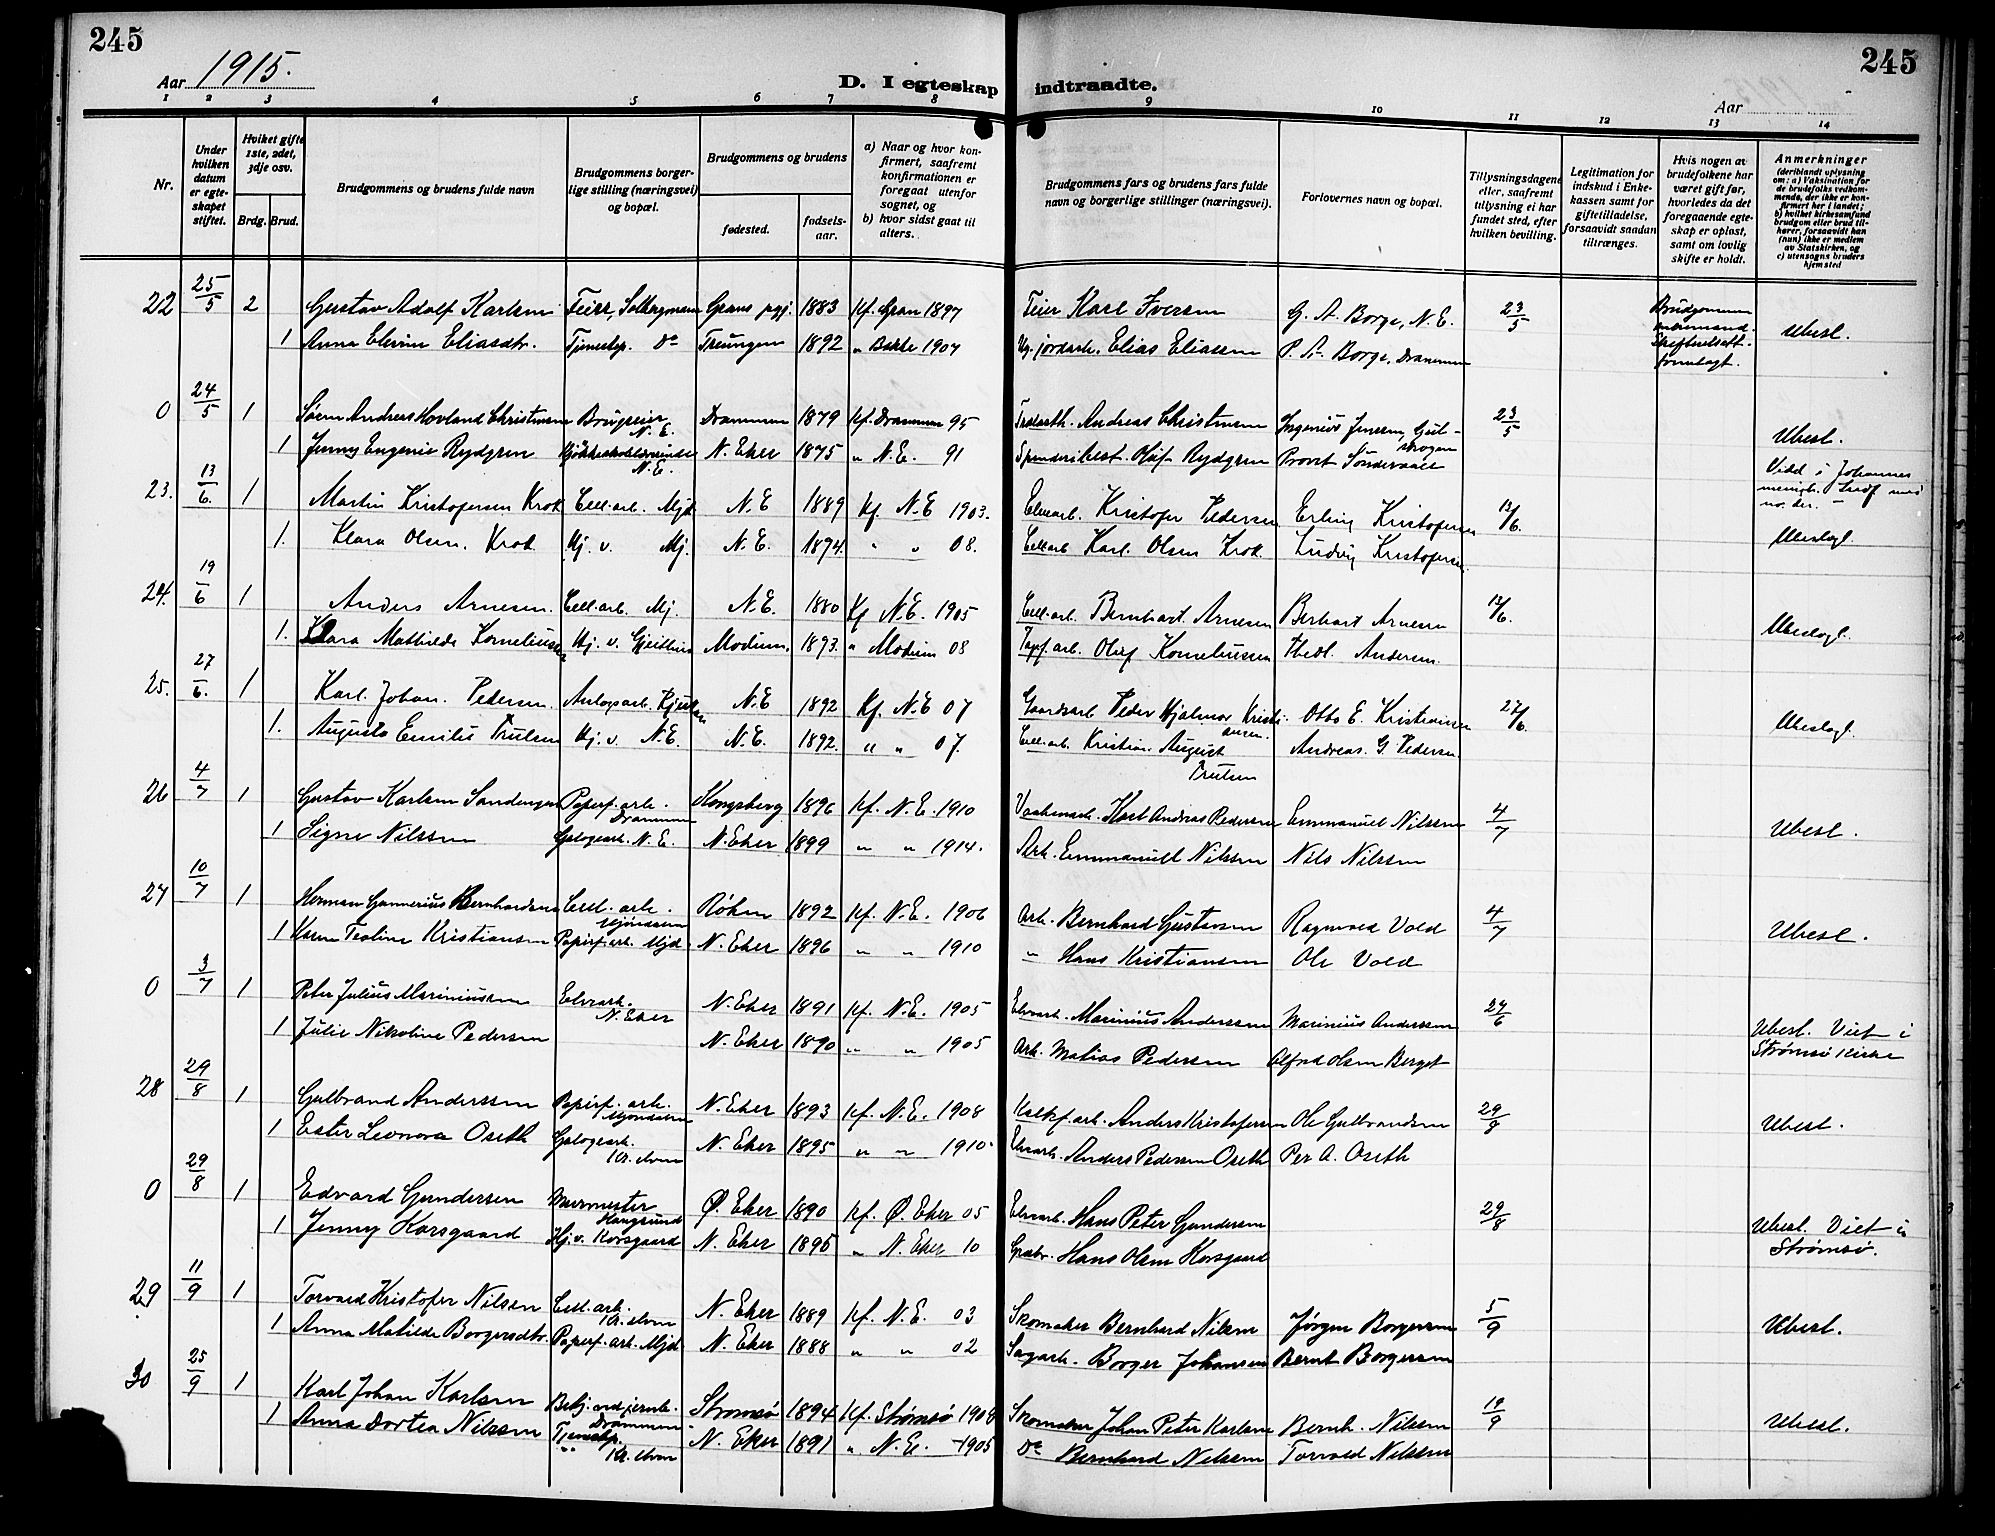 245
245
Aar 1915.
D. I egteskap indtraadte.
Aar
1 2 3 4 5 6 7 8 9 10 11 12 13 14
Nr.
Under hvilken datum er egteskapet stiftet.
Hvilket gifte 1ste, 2det, 3dje osv.
Brdg. Brud.
Brudgommens og brudens fulde navn
Brudgommens borgerlige stilling (næringsvei) og bopæl.
Brudgommens og brudens
fødested.
fødselsaar.
a) Naar og hvor konfirmert, saafremt konfirmationen er foregaat utenfor sognet, og
b) hvor sidst gaat til alters.
Brudgommens fars og brudens fars fulde navn og borgerlige stillinger (næringsvei).
Forlovernes navn og bopæl.
Tillysningsdagene eller, saafremt tillysning ei har fundet sted, efter hvilken bevilling.
Legitimation for indskud i Enkekassen samt for giftetilladelse, forsaavidt saadan tiltrænges.
Hvis nogen av brudefolkene har været gift før, hvorledes da det foregaaende egteskap er opløst, samt om lovlig skifte er holdt.
Anmerkninger (deriblandt oplysning om: a) Vaksination for de brudefolks vedkommende, der ikke er konfirmert her i landet; b) hvilket kirkesamfund brudgom eller brud tilhører, forsaavidt han (hun) ikke er medlem av Statskirken, og c) utensogns bruders hjemsted
22 25/5 2 Gustav Adolf Karlsen Feier, Solbergmoen Grans pgj. 1883 kf. Gran 1897 Feier Karl Iversen G. A. Borge, N. E. 23/5 Brudgommen enkemand. Skifteattest fremlagt. Ubesl.
1 Anna Elevine Eliasdtr. Tjenestep. Do Treungen 1892 " Bakke 1907 Elias Eliassen P. A. Borge, Drammen
0 24/5 1 Søren Andreas Hovland Christensen Brugseier N. E. Drammen 1879 kf. Drammen 95 Andreas Christensen Ingeniør Jensen, Gulskogen 23/5 Ubesl.
1 Jenny Eugenie Rydgren N. E. N. Eker 1875 " N. E. 91 Olaf Rydgren Provst Søndervaale Viet i Johannes menigh.
23. 13/6. 1 Martin Kristofersen Krok Cell.arb. Mjd. N. E 1889 Kf. N. E 1903. Elvearb. Kristofer Pedersen Erling Kristofersen 13/6.
1. Klara Olsen. Krok Hj. v. Mj. N. E. 1894. " " 08. Cellarb. Karl Olsen Krok. Ludvig Kristofersen. Ubeslegt.
24. 19/6 1 Anders Arnesen. Cell.arb. Mj. N. E. 1880 Kf N. E. 1905 Cell.arb. Bernhart Arnesen Berhart Arnesen 13/6. Ubeslegt.
1. Klara Mathilde Korneliussen Hj. v. Gjeithus Modum. 1893. " Modum 08 Papf. arb. Oluf Korneliussen Thedl. Andersen.
25. 27/6. 1 Karl. Johan. Pedersen. Anlægsarb. Rjukan N. E 1892 Kf. N. E 07 Gaardsarb Peder Hjalmar Kristiansen. Otto E. Kristiansen 27/6. Ubeslegt.
1. Augusta Emilie Trulsen Hj. v. N. E. N. E. 1892. " " 07. Cell.arb. Kristian. August Trulsen Andreas. G. Pedersen.
26 4/7 1 Gustav Karlsen Sandengen Papirf. arb. Drammen Kongsberg 1896 kf. N. E. 1910 Vaabenarb. Karl Andreas Pedersen Emmanuel Nilssen 4/7 Ubesl.
1 Signe Nilssen N. E. N. Eker 1899 " " 1914. Arb. Emmanuel Nilssen Nils Nilssen
27 10/7 1 Herman Gunnerius Bernhardsen Cell. arb. Mjøndalen Røken 1892 kf. N. E. 1906 Arb. Bernhard Gustavsen Ragnvald Vold 4/7 Ubesl.
1 Karen Teoline Kristiansen Papirf. arb. Mjd. N. Eker 1896 " " 1910 " Hans Kristiansen Ole Vold
0 3/7 1 Peter Julius Mariniussen Elvearb. N. Eker N. Eker 1891 kf. N. E. 1905 Elvearb. Marinius Anderssen Marinius Anderssen 27/6 Ubesl. Viet i Strømsø kirke
1 Julie Nikoline Pedersen N. Eker 1890 " " 1905 Arb. Matias Pedersen Alfred Olsen Berget
28 29/8 1 Gulbrand Anderssen Papirf. arb. Mjøndalen N. Eker 1893 kf. N. E. 1908 Kalkf. arb. Anders Kristofersen Ole Gulbrandsen 29/8 Ubesl.
1 Ester Leonora Oseth Kr. elven N. Eker 1895 " " 1910 Elvearb. Anders Pedersen Oseth Per A. Oseth
0 29/8 1 Edvard Gundersen Murmester Hougsund Ø. Eker 1890 kf. Ø. Eker 05 Elvearb. Hans Peter Gundersen 29/8 Ubesl. Viet i Strømsø.
1 Jenny Korsgaard Hj. v. Korsgaard N. Eker 1895 " N. Eker 10 Grdbr. Hans Olsen Korsgaard
29 11/9 1 Torvald Kristofer Nilsen Cell. arb. Kr. elven N. Eker 1889 kf. N. E. 03 Skomaker Bernhard Nilsen Jørgen Borgersen 5/9 Ubesl.
1 Anna Matilde Borgersdtr. Papirf. arb. Mjd N. Eker 1888 " " 02 Sagarb. Borger Johansen Bernt Borgersen
30 25/9 1 Karl Johan Karlsen Betj. ved jernb. Drammen Strømsø 1894 kf. Strømsø 1909 Skomaker Johan Peter Karlsen Bernh. Nilssen 19/9 Ubesl.
1 Anna Dortea Nilssen Tjenestep. Kr. elven N. Eker 1891 " N. E. 1905 Do Bernhard Nilssen Torvald Nilssen